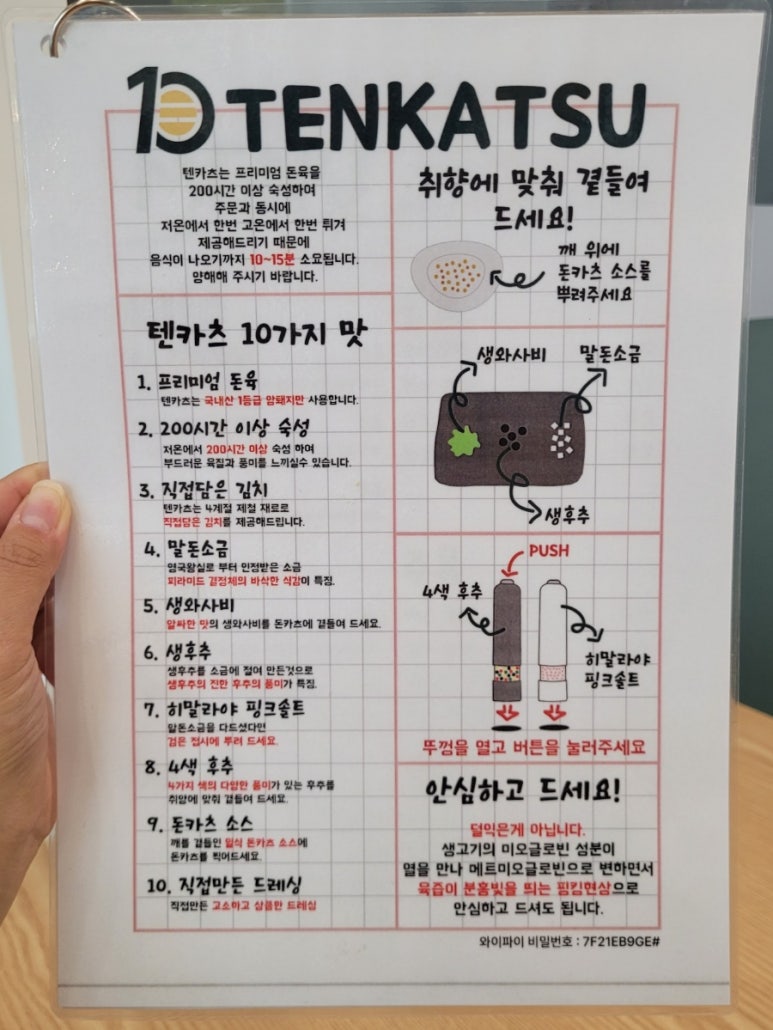 10 TENKATSU
텐카츠는 프리미엄 돈육을
200시간 이상 숙성하여
주문과 동시에
저온에서 한번 고온에서 한번 튀겨
제공해드리기 때문에
음식이 나오기까지 10~15분 소요됩니다.
양해해 주시기 바랍니다.
텐카츠 10가지 맛
1. 프리미엄 돈육
텐카츠는 국내산 1등급 암퇘지만 사용합니다.
2. 200시간 이상 숙성
저온에서 200시간 이상 숙성 하여
부드러운 육질과 풍미를 느끼실수 있습니다.
3. 직접담은 김치
텐카츠는 4계절 제철 재료로
직접담은 김치를 제공해드립니다.
4. 말돈소금
영국왕실로 부터 인정받은 소금
피라미드 결정체의 바삭한 식감이 특징.
5. 생와사비
알싸한 맛의 생와사비를 돈카츠에 곁들여 드세요.
6. 생후추
생후추를 소금에 절여 만든것으로
생후추의 진한 후추의 풍미가 특징.
7. 히말라야 핑크솔트
말돈소금을 다드셨다면
검은 접시에 뿌려 드세요.
8. 4색 후추
4가지 색의 다양한 풍미가 있는 후추를
취향에 맞춰 곁들여 드세요.
9. 돈카츠 소스
깨를 곁들인 일식 돈카츠 소스에
돈카츠를 찍어드세요.
10. 직접만든 드레싱
직접만든 고소하고 상큼한 드레싱
취향에 맞춰 곁들여
드세요!
깨 위에
돈카츠 소스를
뿌려주세요
생와사비
말돈소금
생후추
PUSH
4색 후추
히말라야
핑크솔트
뚜껑을 열고 버튼을 눌러주세요
안심하고 드세요!
덜익은게 아닙니다.
생고기의 미오글로빈 성분이
열을 만나 메트미오글로빈으로 변하면서
육즙이 분홍빛을 띄는 핑킹현상으로
안심하고 드셔도 됩니다.
와이파이 비밀번호 : 7F21EB9GE#